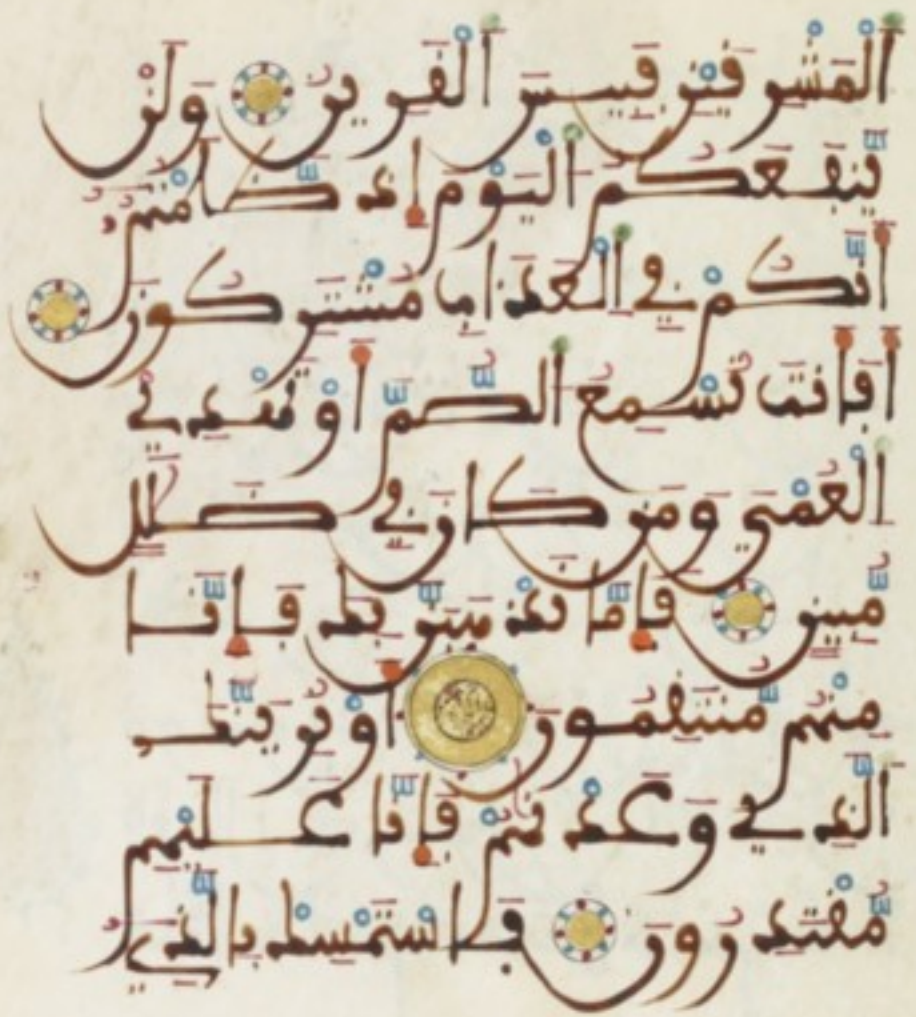 اَلْمَشْرِقَيْنِ فَبِيسَ اَلْقَرِينُ وَلَنْ
يَّنفَعَكُمُ اُلْيَوْمَ إِذ ظَّلَمْتُمُۥ
أَنَّكُمْ فِي اِلْعَذَابِ مُشْتَرِكُونَ
أَفَأَنتَ تُسْمِعُ اُلصُّمَّ أَوْ تَهْدِي
اِلْعُمْيَ وَمَن كَانَ فِي ضَلَٰلٍ
مُّبِينٍ فَإِمَّا نَذْهَبَنَّ بِكَ فَإِنَّا
مِنْهُم مُّنتَقِمُونَ أَوْ نُرِيَنَّكَ
اَلَّذِي وَعَدْنَٰهُمْ فَإِنَّا عَلَيْهِم
مُّقْتَدِرُونَ فَاسْتَمْسِكْ بِالَّذِي